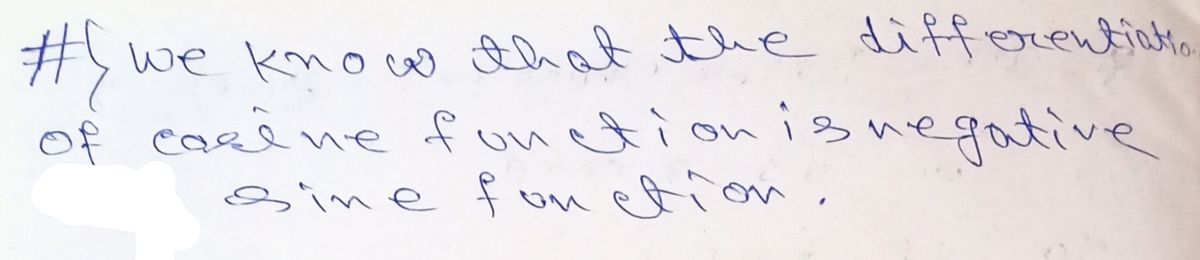 #} we know that the differentiatio
of cosine function is negative
sine function.